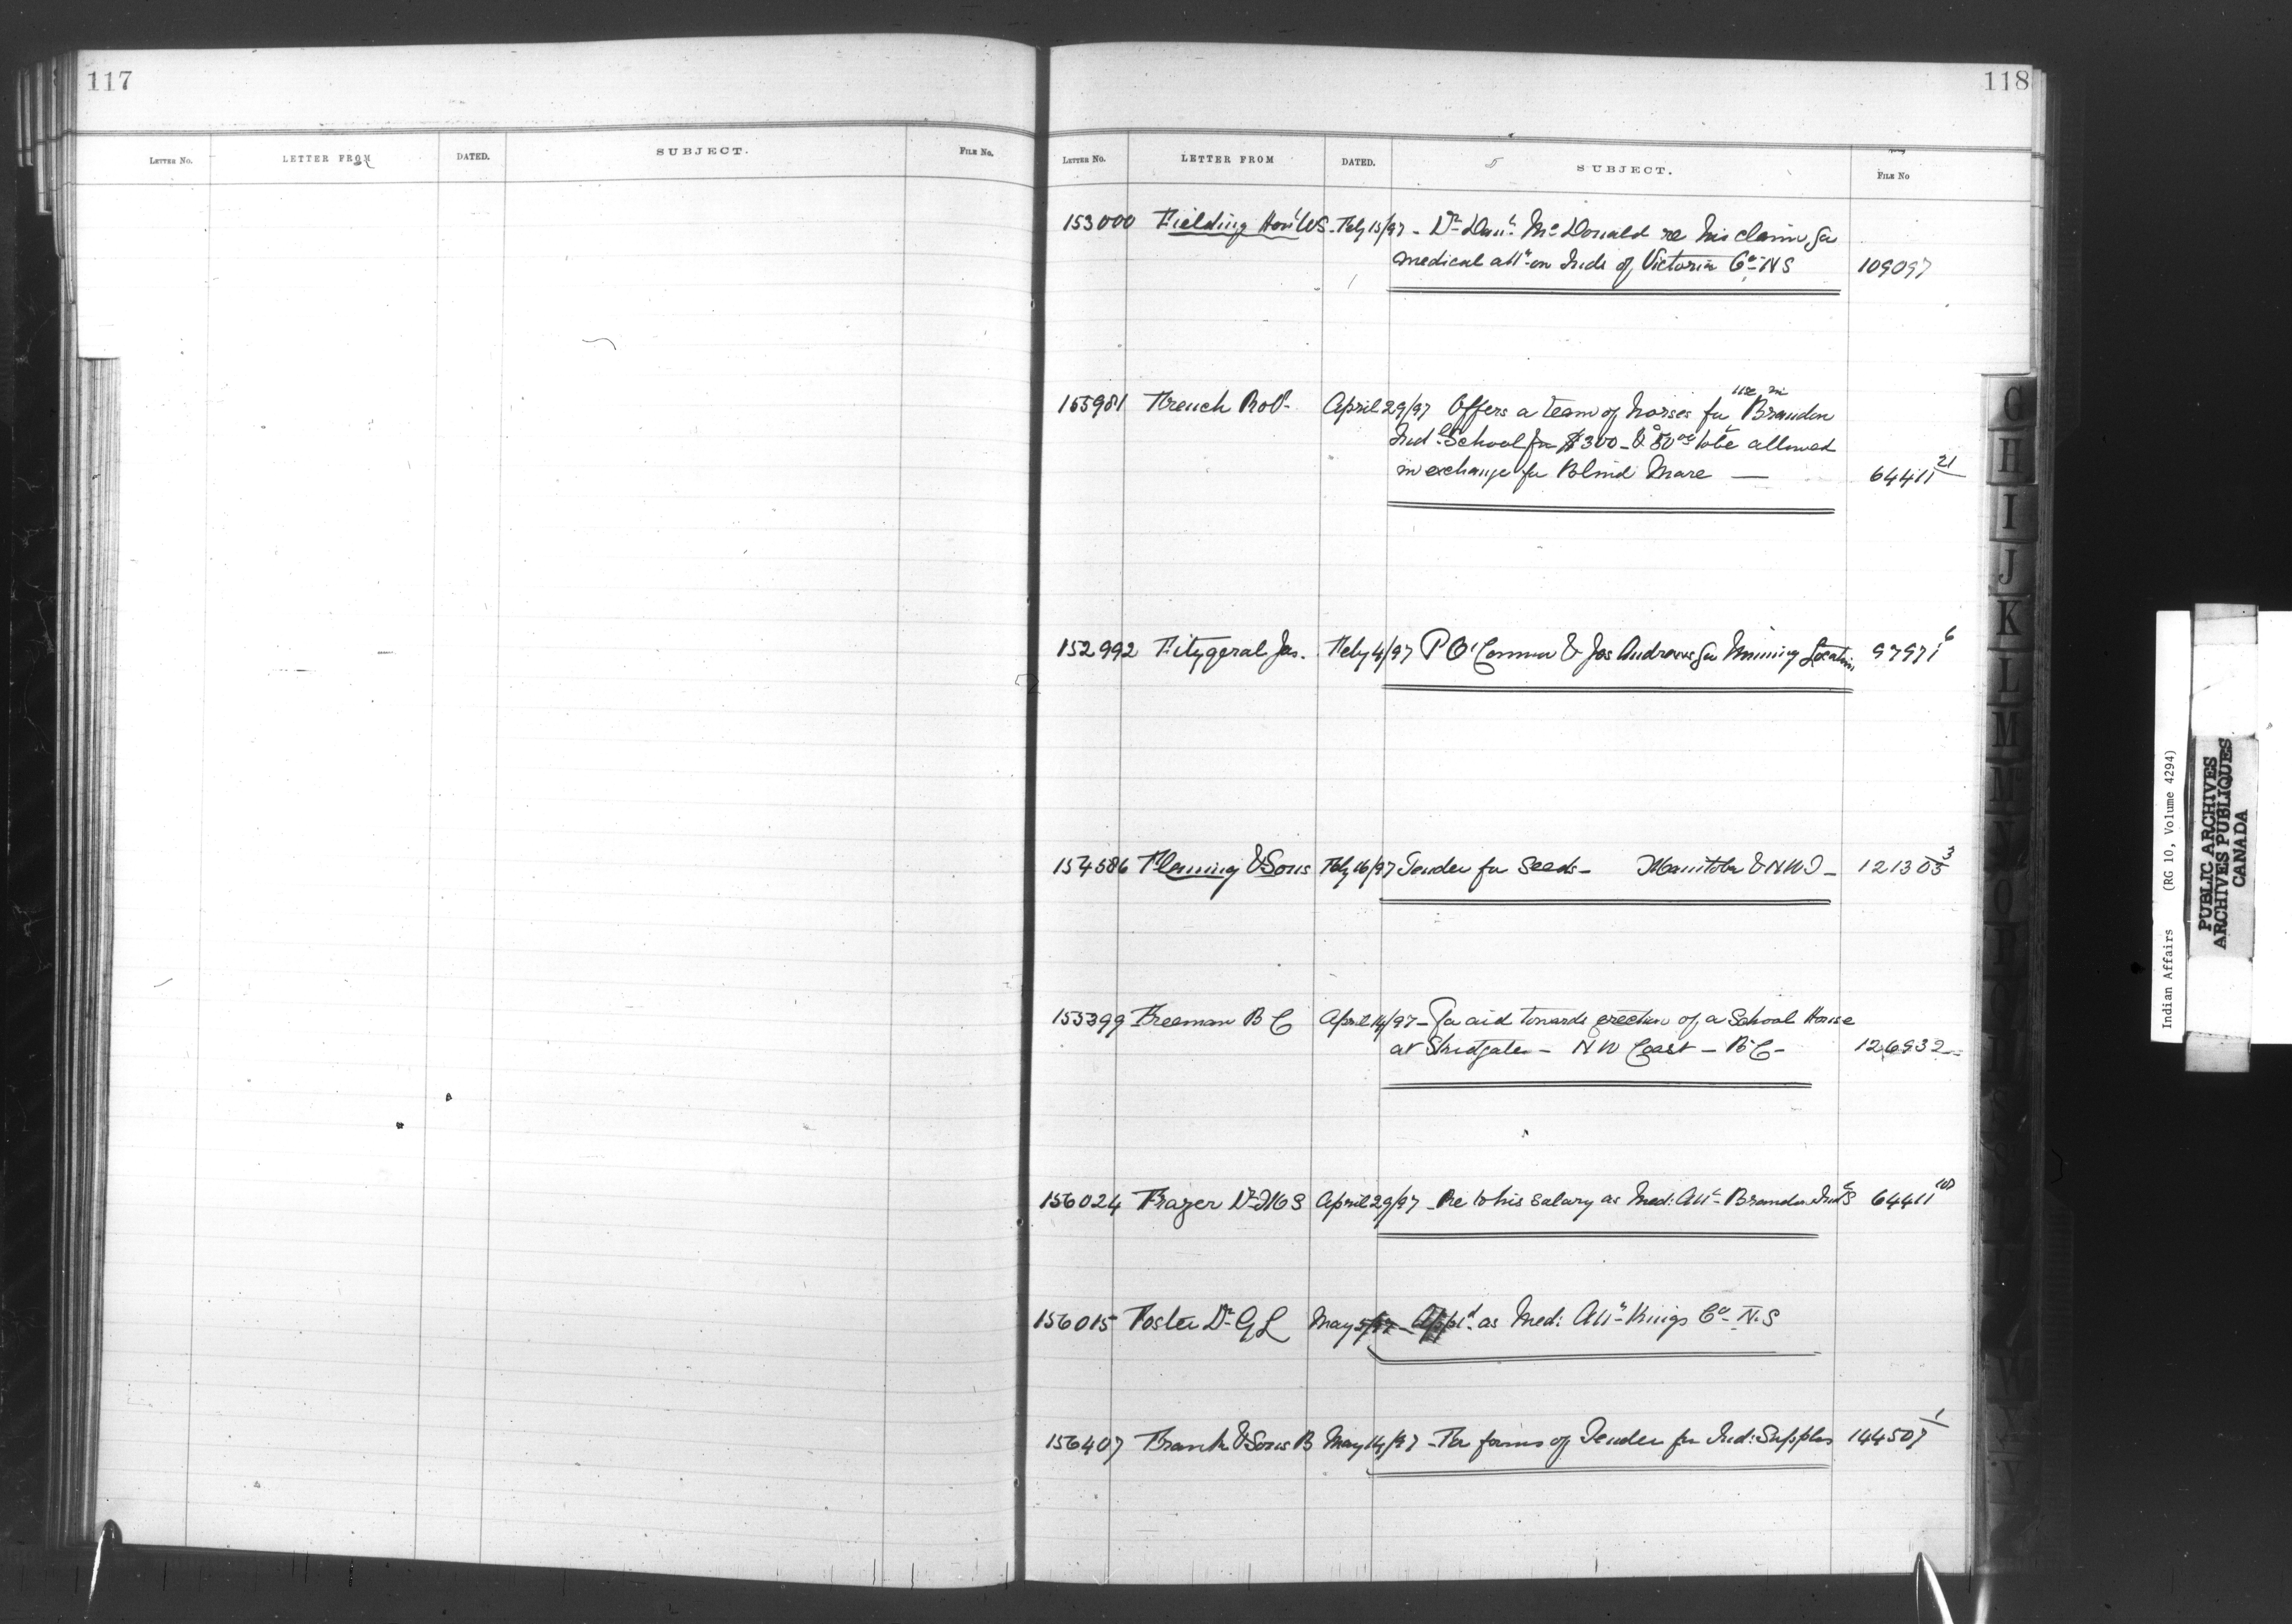 117
LETTER No. LETTER FROM DATED. SUBJECT. FILE No.
118
LETTER No. LETTER FROM DATED. SUBJECT. FILE No
153000 Fielding Hon'l WS - Feby 15/97 - Dr Danl McDonald re his claim for
medical attn on Inds of Victoria Co - NS 109097
use in
155981 French Robt - April 29/97 Offers a team of horses for Brandon
Indl School for $300 - & $50 00 to be allowed
in exchange for Blind Mare — 64411 21
152992 Fitzgeral Jas. Feby 4/97 P O'Connor & Jas Andrews for Mining Location 97971 6
154586 Fleming & Sons Feby 16/97 Tender for Seeds - Manitoba & NWT - 121305 3
155399 Freeman B C April 14/97 - For aid towards erection of a School House
at Skidgate - N W Coast - B C - 126932
156024 Frazer Dr April 29/97 - Re to his salary as Med: Att - Brandon Indl S 64411 10
156015 Foster Dr G L May 5/97 - App'd as Med: Attn Kings Co - N.S
156407 Frank & Sons B May 14/97 - For forms of Tender for Ind: Supplies 144507 1
G
H
I
J
K
L
M
Indian Affairs (RG 10, Volume 4294)
PUBLIC ARCHIVES
ARCHIVES PUBLIQUES
CANADA